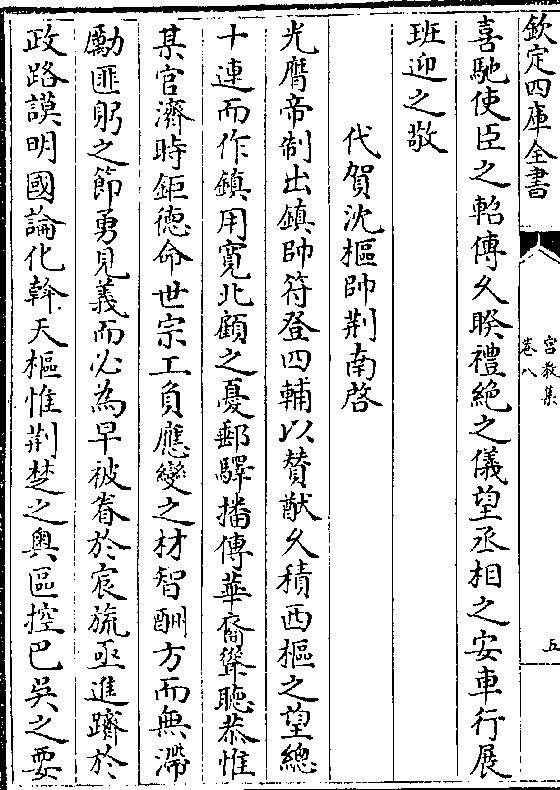 欽定四庫全書
宮教集
卷八
五
喜馳使臣之軺傳久睽禮絶之儀望丞相之安車行展
班迎之敬
代賀沈樞帥荆南啓
光膺帝制出鎮帥符登四輔以賛猷久積西樞之望總
十連而作鎮用寛北顧之憂郵驛播傳華裔聳聽恭惟
某官濟時鉅德命世宗工負應變之材智酬方而無滯
勵匪躬之節勇見義而必為早被眷於宸旒亟進躋於
政路謨明國論化斡天樞惟荆楚之奥區控巴吳之要